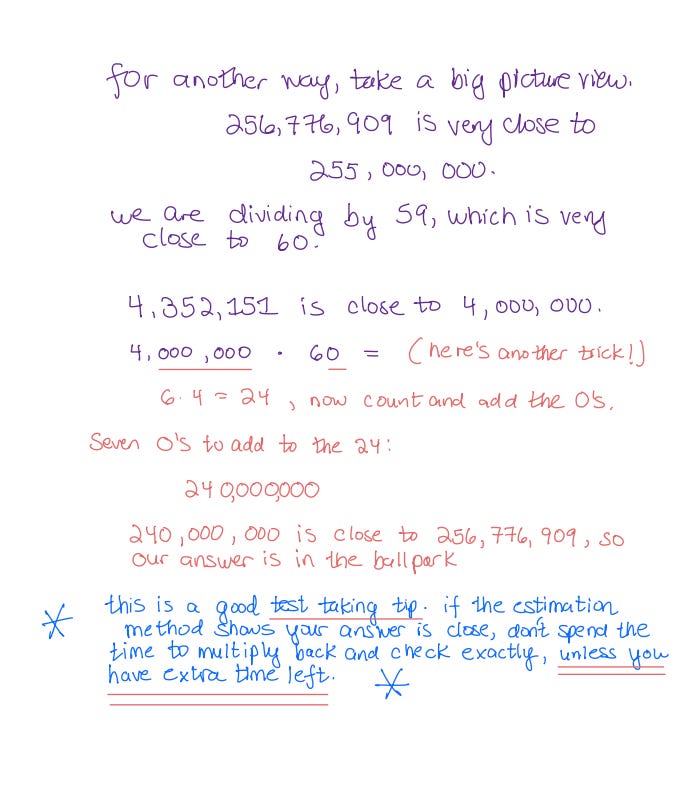 for another way, take a big picture view.
256,776,909 is very close to
255,000,000.
we are dividing by 59, which is very
close to 60.
4,352,151 is close to 4,000,000.
4,000,000 · 60 = (here's another trick!)
6·4 = 24, now count and add the 0's.
Seven 0's to add to the 24:
240,000,000
240,000,000 is close to 256,776,909, so
our answer is in the ballpark
* this is a good test taking tip. if the estimation
method shows your answer is close, don't spend the
time to multiply back and check exactly, unless you
have extra time left. *